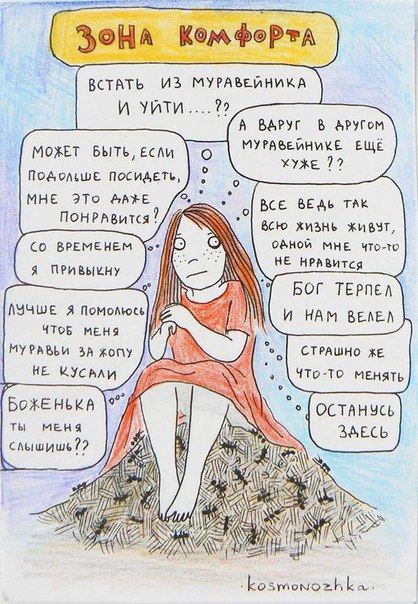 ЗОНА КОМФОРТА
ВСТАТЬ ИЗ МУРАВЕЙНИКА
И УЙТИ....??
А ВДРУГ В ДРУГОМ
МУРАВЕЙНИКЕ ЕЩЁ
ХУЖЕ??
МОЖЕТ БЫТЬ, ЕСЛИ
ПОДОЛЬШЕ ПОСИДЕТЬ,
МНЕ ЭТО ДАЖЕ
ПОНРАВИТСЯ?
ВСЕ ВЕДЬ ТАК
ВСЮ ЖИЗНЬ ЖИВУТ,
ОДНОЙ МНЕ ЧТО-ТО
НЕ НРАВИТСЯ
СО ВРЕМЕНЕМ
Я ПРИВЫКНУ
БОГ ТЕРПЕЛ
И НАМ ВЕЛЕЛ
ЛУЧШЕ Я ПОМОЛЮСЬ
ЧТОБ МЕНЯ
МУРАВЬИ ЗА ЖОПУ
НЕ КУСАЛИ
СТРАШНО ЖЕ
ЧТО-ТО МЕНЯТЬ
БОЖЕНЬКА
ТЫ МЕНЯ
СЛЫШИШЬ??
ОСТАНУСЬ
ЗДЕСЬ
·kosmonozhka.